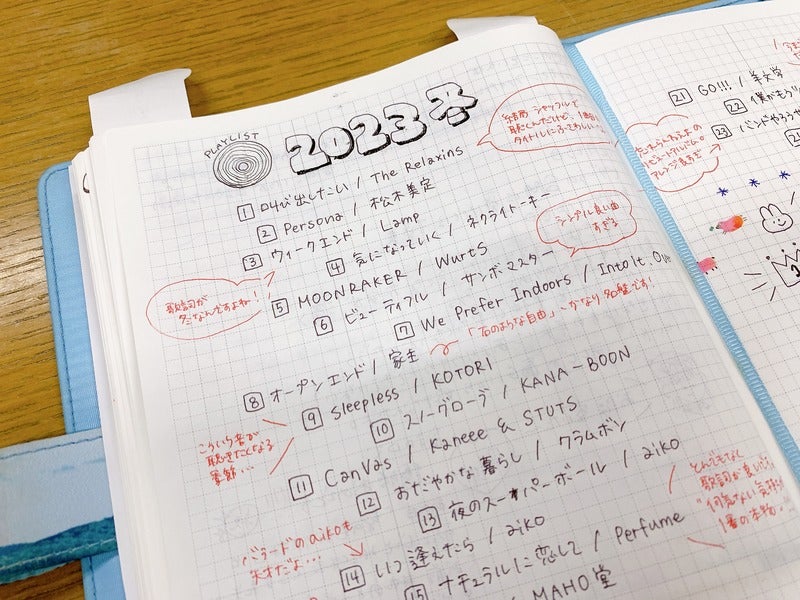 PLAYLIST
2023 冬
結局シャッフルで
聴くんだけど、1番目は
タイトルにふさわしい…
1 叫び出したい / The Relaxins
2 Persona / 松木美定
3 ウィークエンド / Lamp
4 気になっていく / ネクライトーキー
シングル良い曲
すぎる
歌詞が
ダメなんですよね!
5 MOONRAKER / WurtS
6 ビューティフル / サンボマスター
7 We Prefer Indoors / Into It. Ove
「石のような自由」、かなり名盤です!
8 オープンエンド / 家主
9 Sleepless / KOTORI
10 スノーグローブ / KANA-BOON
こういう音が
聴きたくなる
季節…
11 Canvas / Kaneee & STUTS
12 おだやかな暮らし / クラムボン
13 夜のスーパーボール / aiko
とんでもなく
歌詞が良い
"何気ない
1番の本物
バラードのaikoも
天才だよ…
14 いつ逢えたら / aiko
15 ナチュラルに恋して / Perfume
MAHO堂
21 GO!!! / 羊文学
22 僕がもう
23 バンドやろうや
トリビュートアルバム。
アレンジ良すぎ